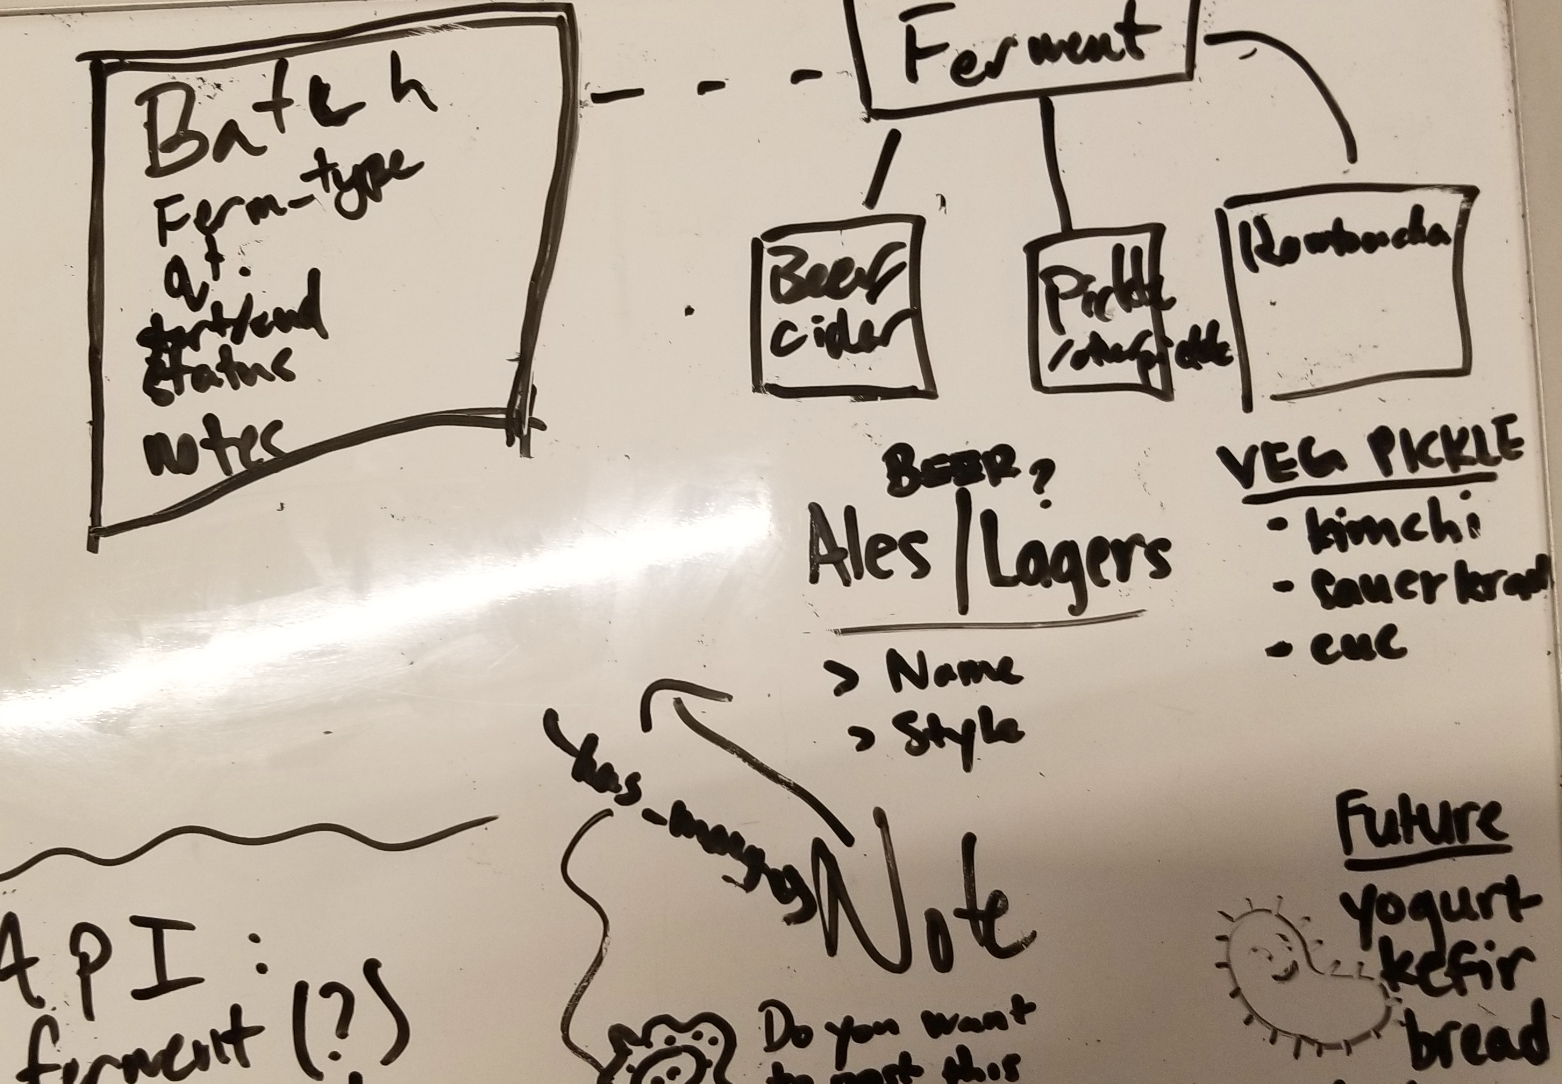 Batch
Ferm-type
qt.
start/end
status
notes
Ferment
Beer
cider
Pickle
/other pickle
Kombucha
BEER?
Ales | Lagers
> Name
> Style
VEG PICKLE
- kimchi
- sauerkraut
- cuc
has-many
Note
Do you want
to post this
API:
ferment (?)
Future
yogurt
kefir
bread